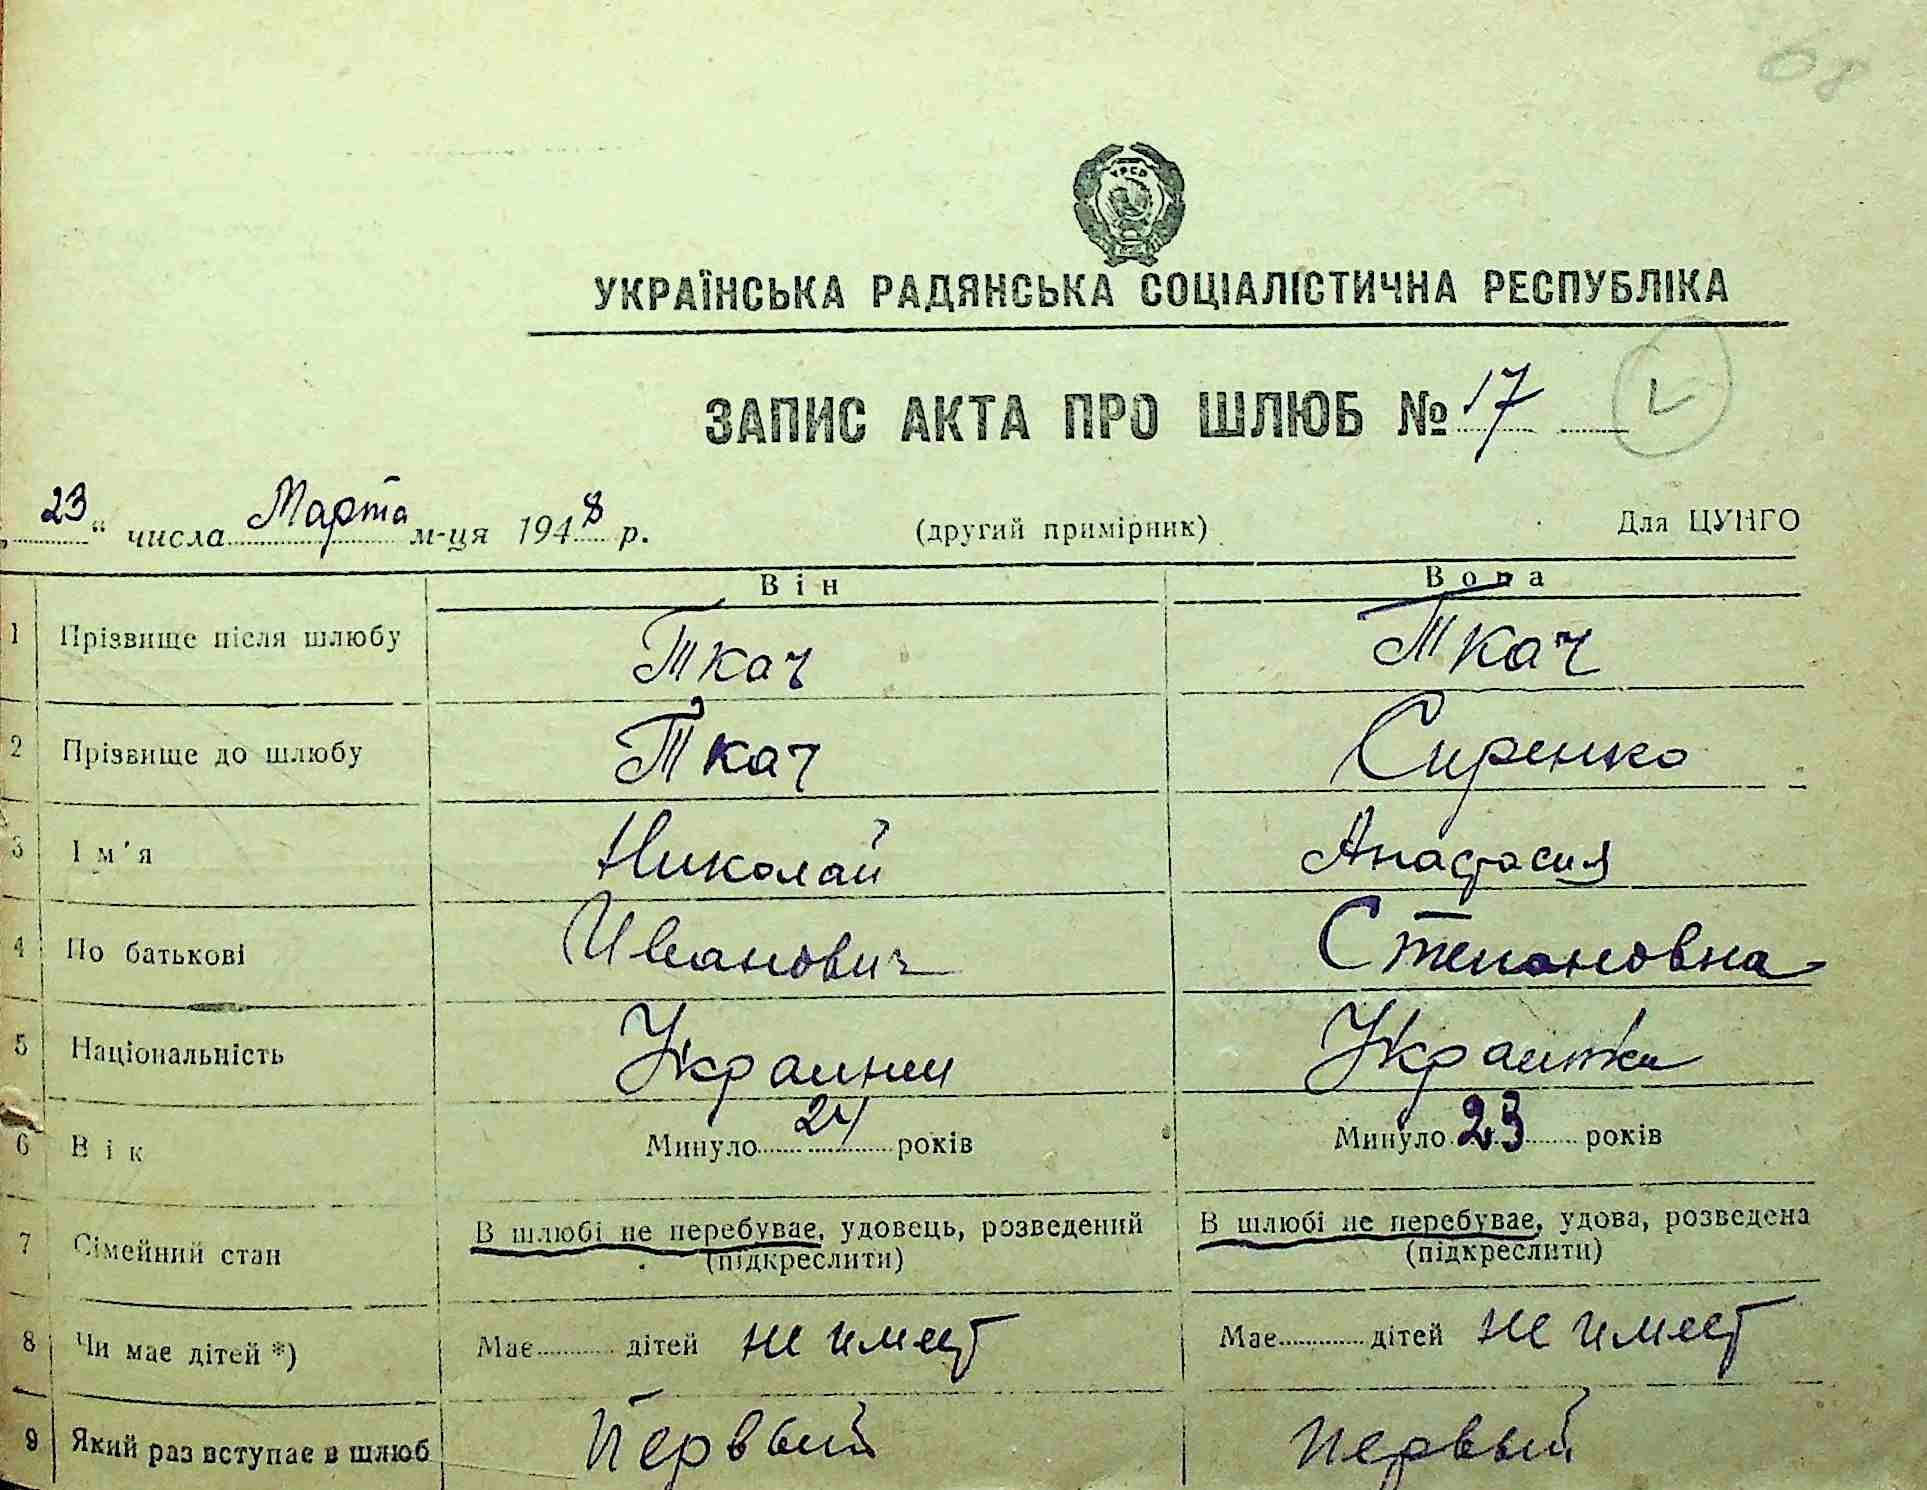 68
УРСР
УКРАЇНСЬКА РАДЯНСЬКА СОЦІАЛІСТИЧНА РЕСПУБЛІКА
ЗАПИС АКТА ПРО ШЛЮБ № 17
„ 23 “ числа Марта м-ця 1948 р. (другий примірник) Для ЦУНГО
Він Вона
1 Прізвище після шлюбу Ткач Ткач
2 Прізвище до шлюбу Ткач Сиренко
3 Ім'я Николай Анастасия
4 По батькові Иванович Степановна
5 Національність Украинец Украинка
6 Вік Минуло 24 років Минуло 23 років
7 Сімейний стан В шлюбі не перебуває, удовець, розведений В шлюбі не перебуває, удова, розведена
(підкреслити) (підкреслити)
8 Чи має дітей *) Має дітей не имеет Має дітей не имеет
9 Який раз вступає в шлюб Первый Первый